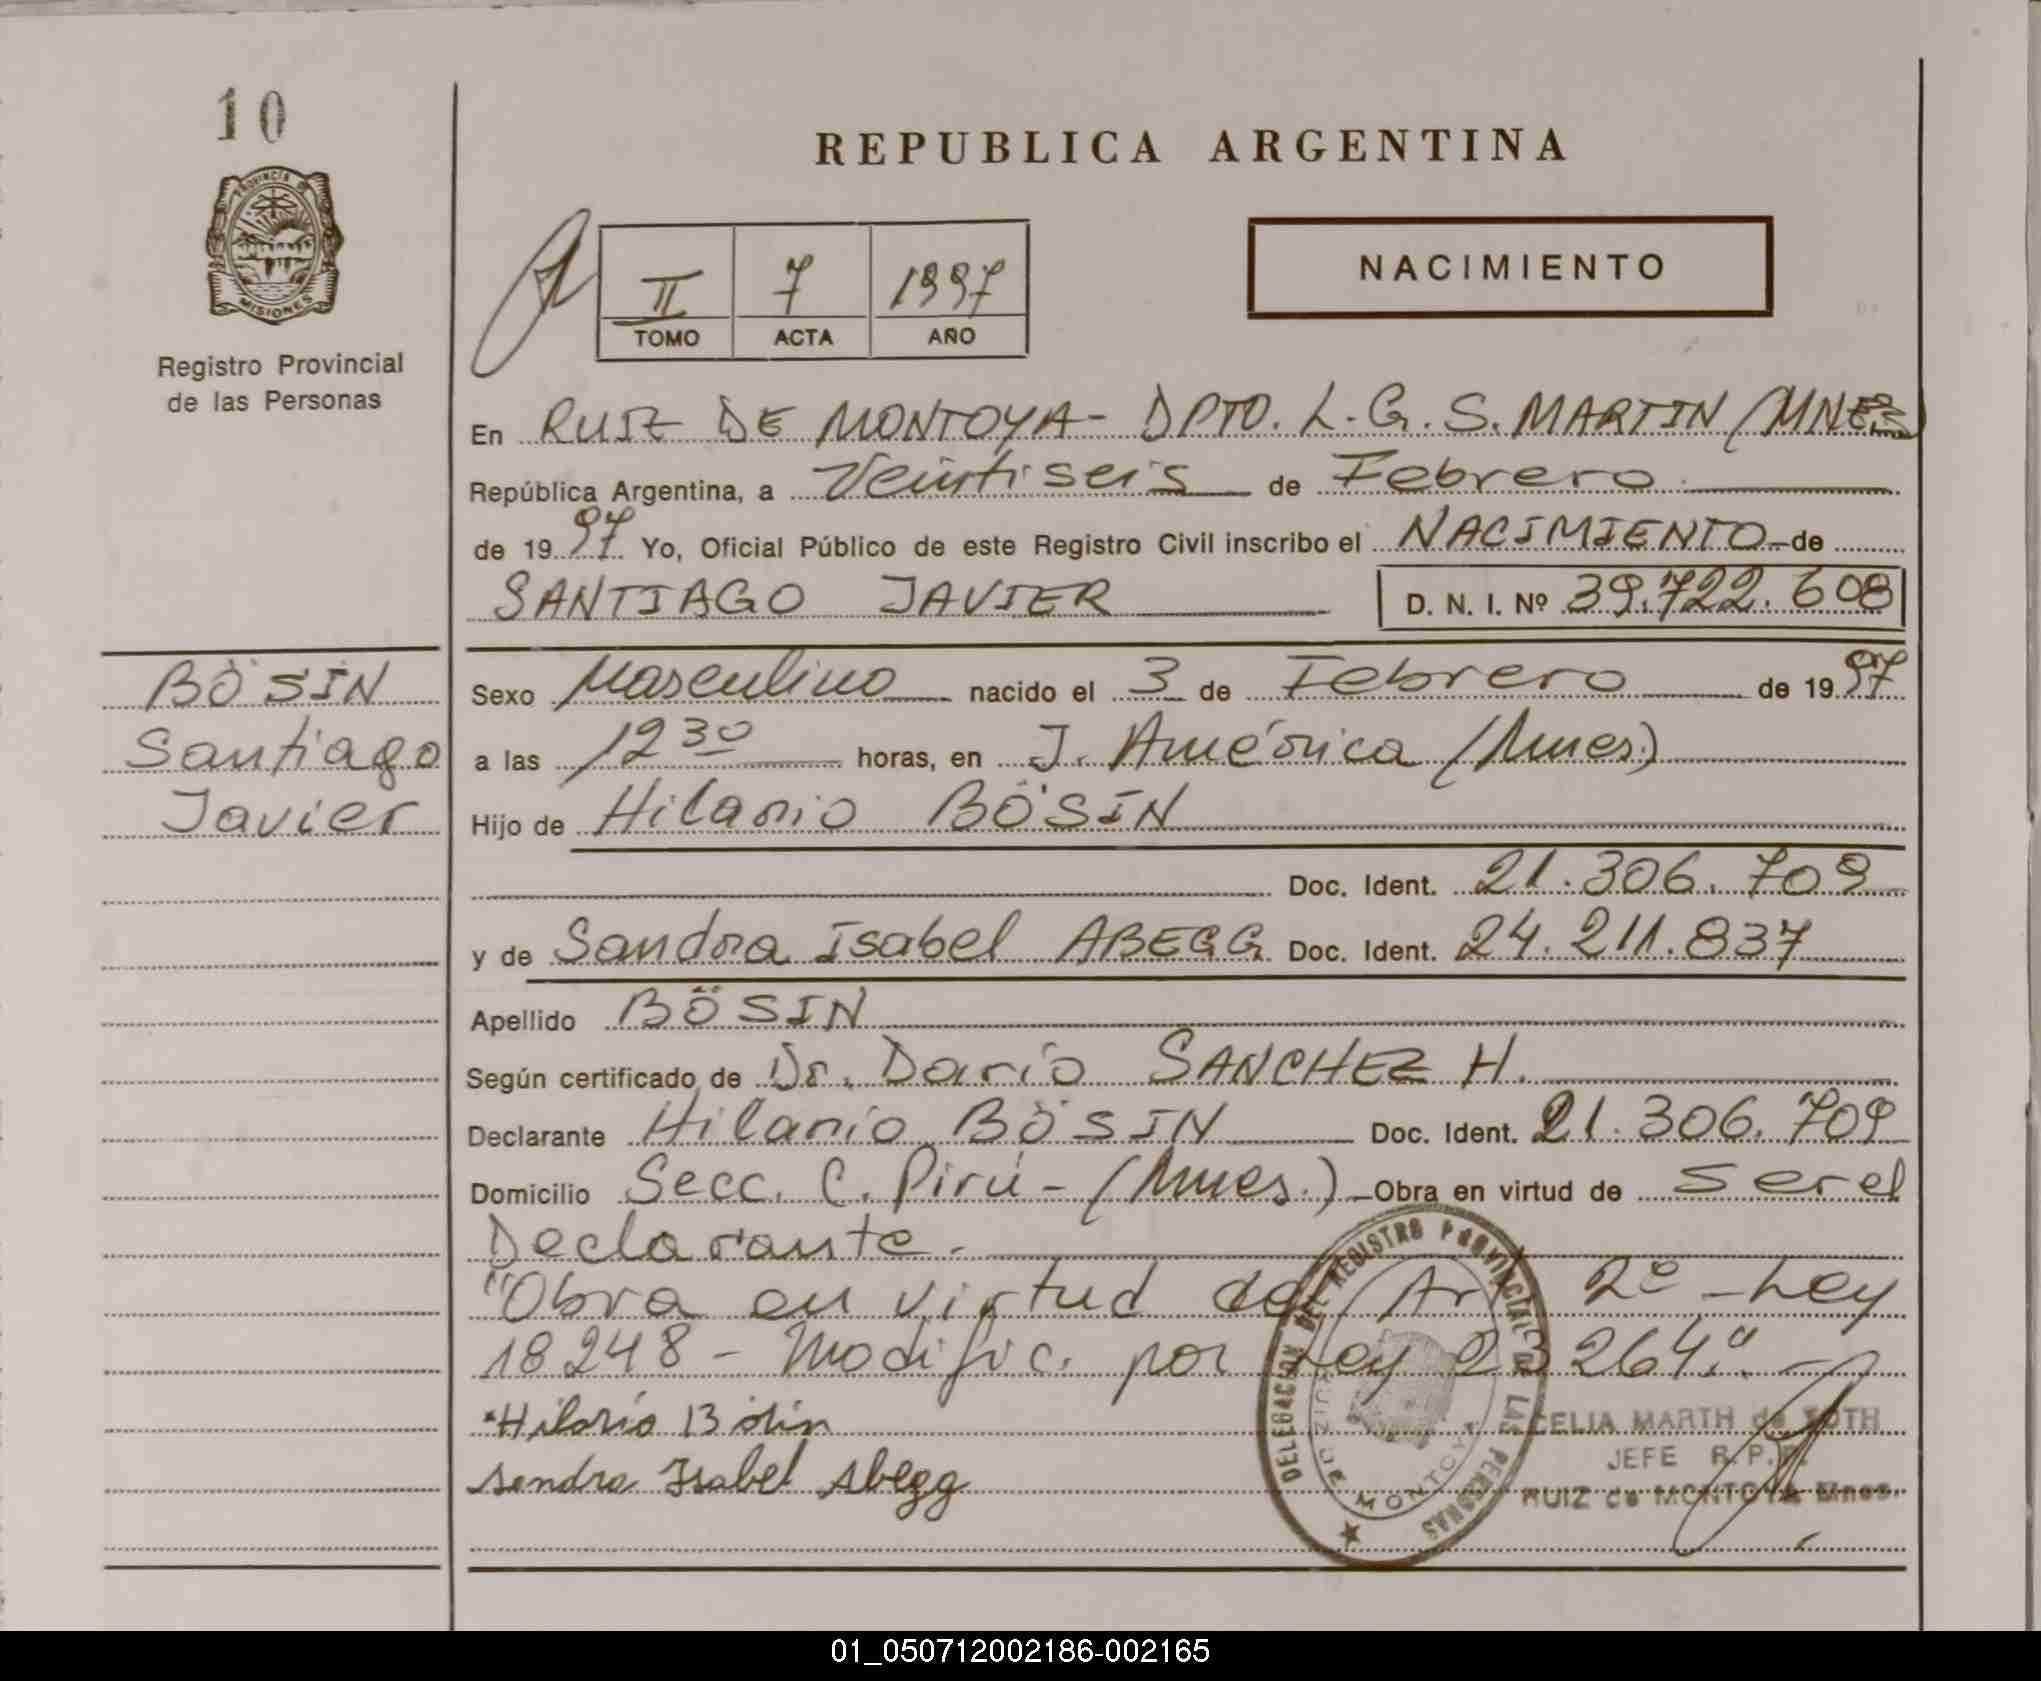 10
PROVINCIA DE
MISIONES
Registro Provincial
de las Personas
BÖSIN
Santiago
Javier
REPUBLICA ARGENTINA
NACIMIENTO
II 7 1997
TOMO ACTA AÑO
En RUIZ DE MONTOYA - DPTO. L. G. S. MARTIN (MNES)
República Argentina, a Veintiseis de Febrero
de 1997 Yo, Oficial Público de este Registro Civil inscribo el NACIMIENTO de
SANTIAGO JAVIER D. N. I. Nº 39.722.608
Sexo Masculino nacido el 3 de Febrero de 1997
a las 12 30 horas, en J. América (Mnes.)
Hijo de Hilario BÖSIN
Doc. Ident. 21.306.709
y de Sandra Isabel ABEGG Doc. Ident. 24.211.837
Apellido BÖSIN
Según certificado de Dr. Darío SANCHEZ H.
Declarante Hilario BÖSIN Doc. Ident. 21.306.709
Domicilio Secc. C. Pirú - (Mnes.) Obra en virtud de ser el
Declarante.
"Obra en virtud del Art 2º - Ley
18248 - Modific. por Ley 23264".
Hilario Bösin
Sendra Isabel Abegg
DELEGACION DEL REGISTRO PROVINCIAL DE LAS PERSONAS
RUIZ DE MONTOYA
CELIA MARTH de TOTH
JEFE R. P. P.
RUIZ de MONTOYA Mnes.
01_050712002186-002165